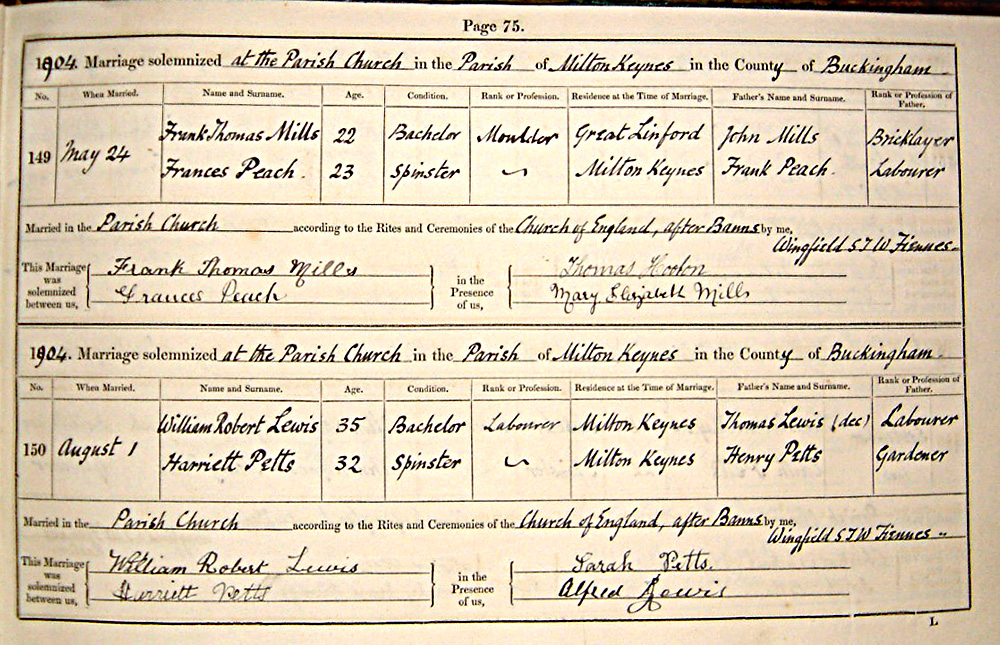 Page 75.
1904. Marriage solemnized at the Parish Church in the Parish of Milton Keynes in the County of Buckingham
No. When Married. Name and Surname. Age. Condition. Rank or Profession. Residence at the Time of Marriage. Father's Name and Surname. Rank or Profession of Father.
149 May 24 Frank Thomas Mills 22 Bachelor Moulder Great Linford John Mills Bricklayer
Frances Peach. 23 Spinster Milton Keynes Frank Peach. Labourer
Married in the Parish Church according to the Rites and Ceremonies of the Church of England, after Banns by me,
Wingfield S T W Fiennes
This Marriage was solemnized between us, Frank Thomas Mills in the Presence of us, Thomas Horton
Frances Peach Mary Elizabeth Mills
1904. Marriage solemnized at the Parish Church in the Parish of Milton Keynes in the County of Buckingham
No. When Married. Name and Surname. Age. Condition. Rank or Profession. Residence at the Time of Marriage. Father's Name and Surname. Rank or Profession of Father.
150 August 1 William Robert Lewis 35 Bachelor Labourer Milton Keynes Thomas Lewis (dec) Labourer
Harriett Petts 32 Spinster Milton Keynes Henry Petts Gardener
Married in the Parish Church according to the Rites and Ceremonies of the Church of England, after Banns by me,
Wingfield S T W Fiennes
This Marriage was solemnized between us, William Robert Lewis in the Presence of us, Sarah Petts.
Harriett Petts Alfred Lewis
L